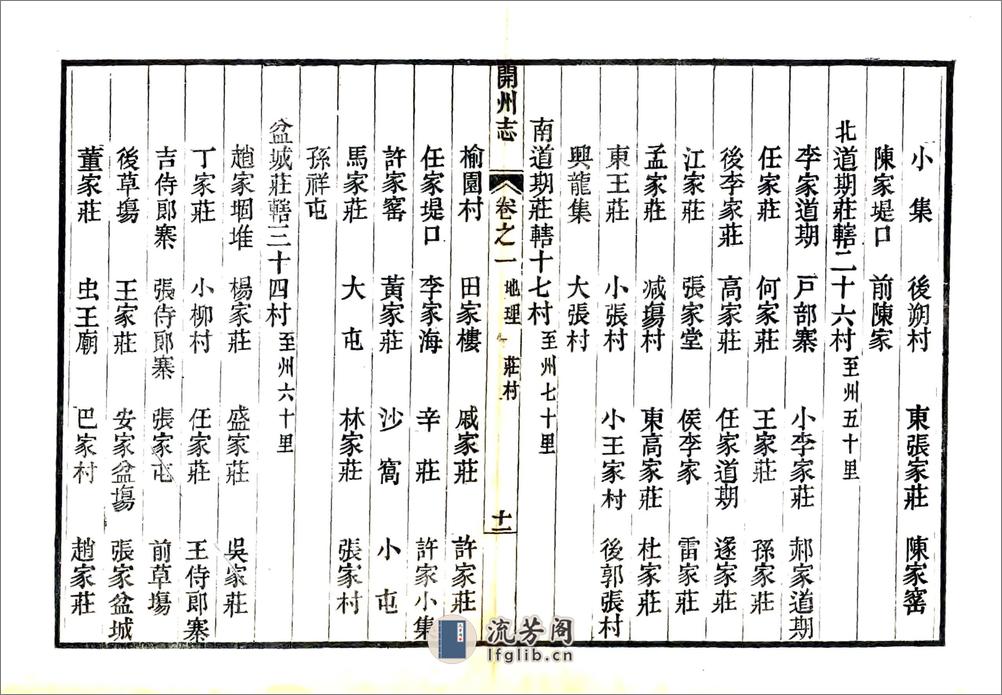 小集　後朔村　東張家莊　陳家窰
陳家堤口　前陳家
北道期莊轄二十六村至州五十里
李家道期　戸部寨　小李家莊　郝家道期
任家莊　何家莊　王家莊　孫家莊
後李家莊　高家莊　任家道期　逯家莊
江家莊　張家堂　侯李家　雷家莊
孟家莊　減塲村　東高家莊　杜家莊
東王莊　小張村　小王家村　後郭張村
興龍集　大張村
南道期莊轄十七村至州七十里
開州志　卷之一　地理　莊村　十一
榆園村　田家樓　戚家莊　許家莊
任家堤口　李家海　辛莊　許家小集
許家窰　黃家莊　沙窩　小屯
馬家莊　大屯　林家莊　張家村
孫祥屯
盆城莊轄三十四村至州六十里
趙家堌堆　楊家莊　盛家莊　吳家莊
丁家莊　小柳村　任家莊　王侍郎寨
吉侍郎寨　張侍郎寨　張家屯　前草塲
後草塲　王家莊　安家盆塲　張家盆城
董家莊　虫王廟　巴家村　趙家莊
流芳阁
lfglib.cn